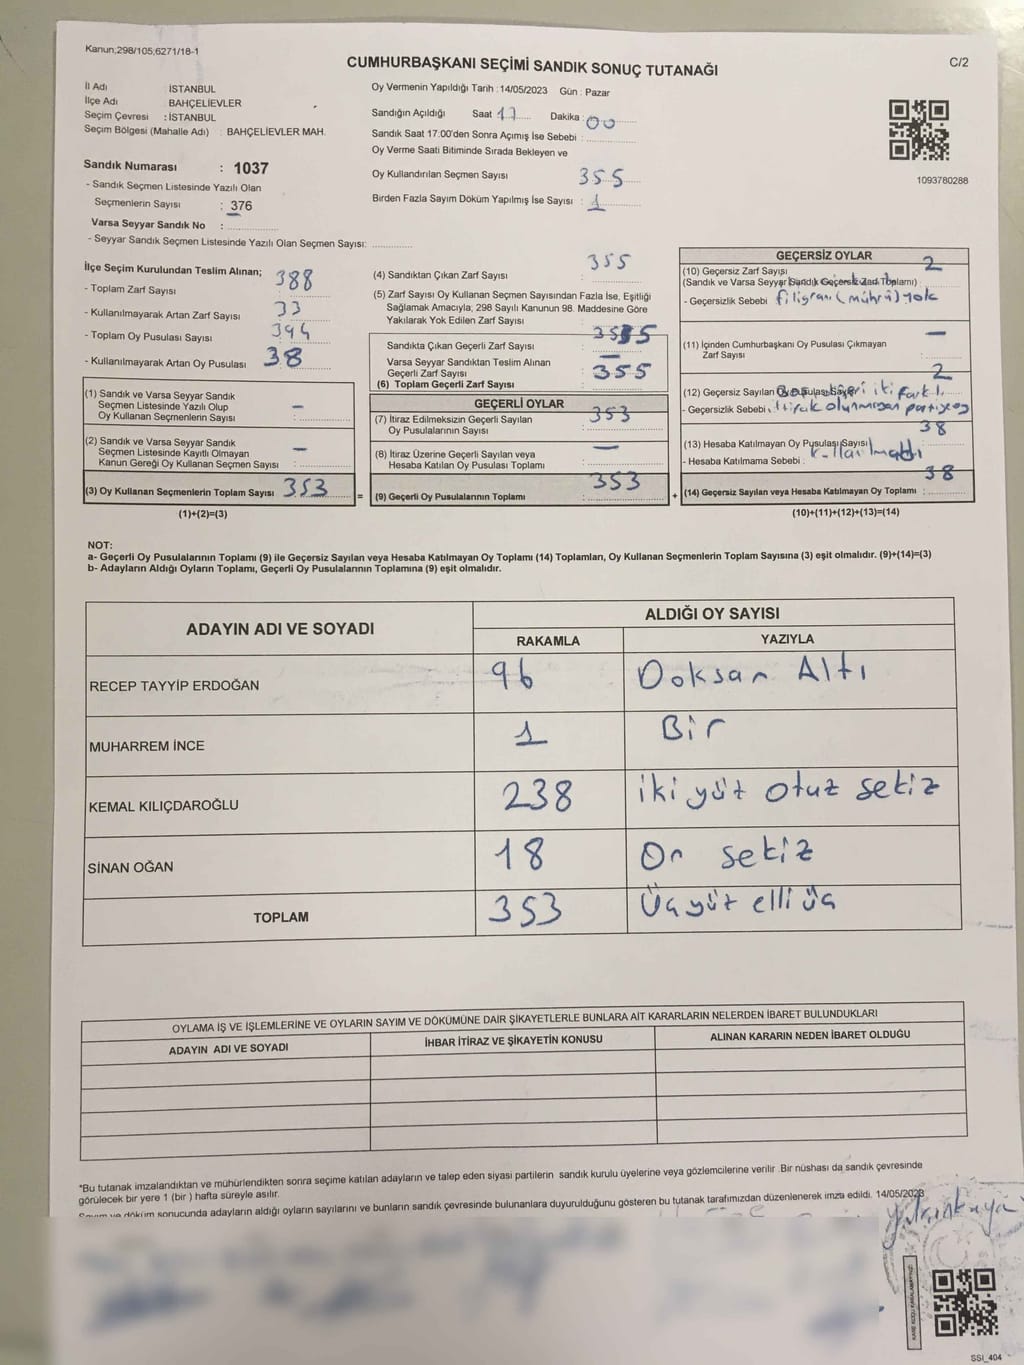 Kanun;298/105;6271/18-1
CUMHURBAŞKANI SEÇİMİ SANDIK SONUÇ TUTANAĞI
C/2
İl Adı : İSTANBUL
İlçe Adı : BAHÇELİEVLER
Seçim Çevresi : İSTANBUL
Seçim Bölgesi (Mahalle Adı) : BAHÇELİEVLER MAH.
Sandık Numarası : 1037
- Sandık Seçmen Listesinde Yazılı Olan
Seçmenlerin Sayısı : 376
Varsa Seyyar Sandık No :
- Seyyar Sandık Seçmen Listesinde Yazılı Olan Seçmen Sayısı: ..............
Oy Vermenin Yapıldığı Tarih : 14/05/2023 Gün : Pazar
Sandığın Açıldığı Saat 17 Dakika : 00
Sandık Saat 17.00'den Sonra Açımış İse Sebebi :
Oy Verme Saati Bitiminde Sırada Bekleyen ve
Oy Kullandırılan Seçmen Sayısı 355
Birden Fazla Sayım Döküm Yapılmış İse Sayısı : 1
1093780288
İlçe Seçim Kurulundan Teslim Alınan;
- Toplam Zarf Sayısı 388
- Kullanılmayarak Artan Zarf Sayısı 33
- Toplam Oy Pusulası Sayısı 394
- Kullanılmayarak Artan Oy Pusulası 38
(1) Sandık ve Varsa Seyyar Sandık
Seçmen Listesinde Yazılı Olup
Oy Kullanan Seçmenlerin Sayısı : –
(2) Sandık ve Varsa Seyyar Sandık
Seçmen Listesinde Kayıtlı Olmayan
Kanun Gereği Oy Kullanan Seçmen Sayısı : –
(3) Oy Kullanan Seçmenlerin Toplam Sayısı : 353
(1)+(2)=(3)
=
(4) Sandıktan Çıkan Zarf Sayısı : 355
(5) Zarf Sayısı Oy Kullanan Seçmen Sayısından Fazla İse, Eşitliği
Sağlamak Amacıyla; 298 Sayılı Kanunun 98. Maddesine Göre
Yakılarak Yok Edilen Zarf Sayısı
Sandıkta Çıkan Geçerli Zarf Sayısı : 355
Varsa Seyyar Sandıktan Teslim Alınan
Geçerli Zarf Sayısı : –
(6) Toplam Geçerli Zarf Sayısı : 355
GEÇERLİ OYLAR
(7) İtiraz Edilmeksizin Geçerli Sayılan
Oy Pusulalarının Sayısı : 353
(8) İtiraz Üzerine Geçerli Sayılan veya
Hesaba Katılan Oy Pusulası Toplamı : –
(9) Geçerli Oy Pusulalarının Toplamı : 353
+
GEÇERSİZ OYLAR
(10) Geçersiz Zarf Sayısı 2
(Sandık ve Varsa Seyyar Sandık Geçersiz Zarf Toplamı)
- Geçersizlik Sebebi : filigranı (mührü) yok
(11) İçinden Cumhurbaşkanı Oy Pusulası Çıkmayan
Zarf Sayısı : –
(12) Geçersiz Sayılan Oy Pusulası Sayısı 2
- Geçersizlik Sebebi : iki farklı
(13) Hesaba Katılmayan Oy Pusulası Sayısı 38
- Hesaba Katılmama Sebebi : kullanılmadı
(14) Geçersiz Sayılan veya Hesaba Katılmayan Oy Toplamı : 38
(10)+(11)+(12)+(13)=(14)
NOT:
a- Geçerli Oy Pusulalarının Toplamı (9) ile Geçersiz Sayılan veya Hesaba Katılmayan Oy Toplamı (14) Toplamları, Oy Kullanan Seçmenlerin Toplam Sayısına (3) eşit olmalıdır. (9)+(14)=(3)
b- Adayların Aldığı Oyların Toplamı, Geçerli Oy Pusulalarının Toplamına (9) eşit olmalıdır.
ADAYIN ADI VE SOYADI
ALDIĞI OY SAYISI
RAKAMLA
YAZIYLA
RECEP TAYYİP ERDOĞAN 96 Doksan Altı
MUHARREM İNCE 1 Bir
KEMAL KILIÇDAROĞLU 238 iki yüz otuz sekiz
SİNAN OĞAN 18 On sekiz
TOPLAM 353 Üç yüz elli üç
OYLAMA İŞ VE İŞLEMLERİNE VE OYLARIN SAYIM VE DÖKÜMÜNE DAİR ŞİKAYETLERLE BUNLARA AİT KARARLARIN NELERDEN İBARET BULUNDUKLARI
ADAYIN ADI VE SOYADI
İHBAR İTİRAZ VE ŞİKAYETİN KONUSU
ALINAN KARARIN NEDEN İBARET OLDUĞU
*Bu tutanak imzalandıktan ve mühürlendikten sonra seçime katılan adayların ve talep eden siyasi partilerin sandık kurulu üyelerine veya gözlemcilerine verilir .Bir nüshası da sandık çevresinde
görülecek bir yere 1 (bir ) hafta süreyle asılır.
Sayım ve döküm sonucunda adayların aldığı oyların sayılarını ve bunların sandık çevresinde bulunanlara duyurulduğunu gösteren bu tutanak tarafımızdan düzenlenerek imza edildi. 14/05/2023
SSI_404